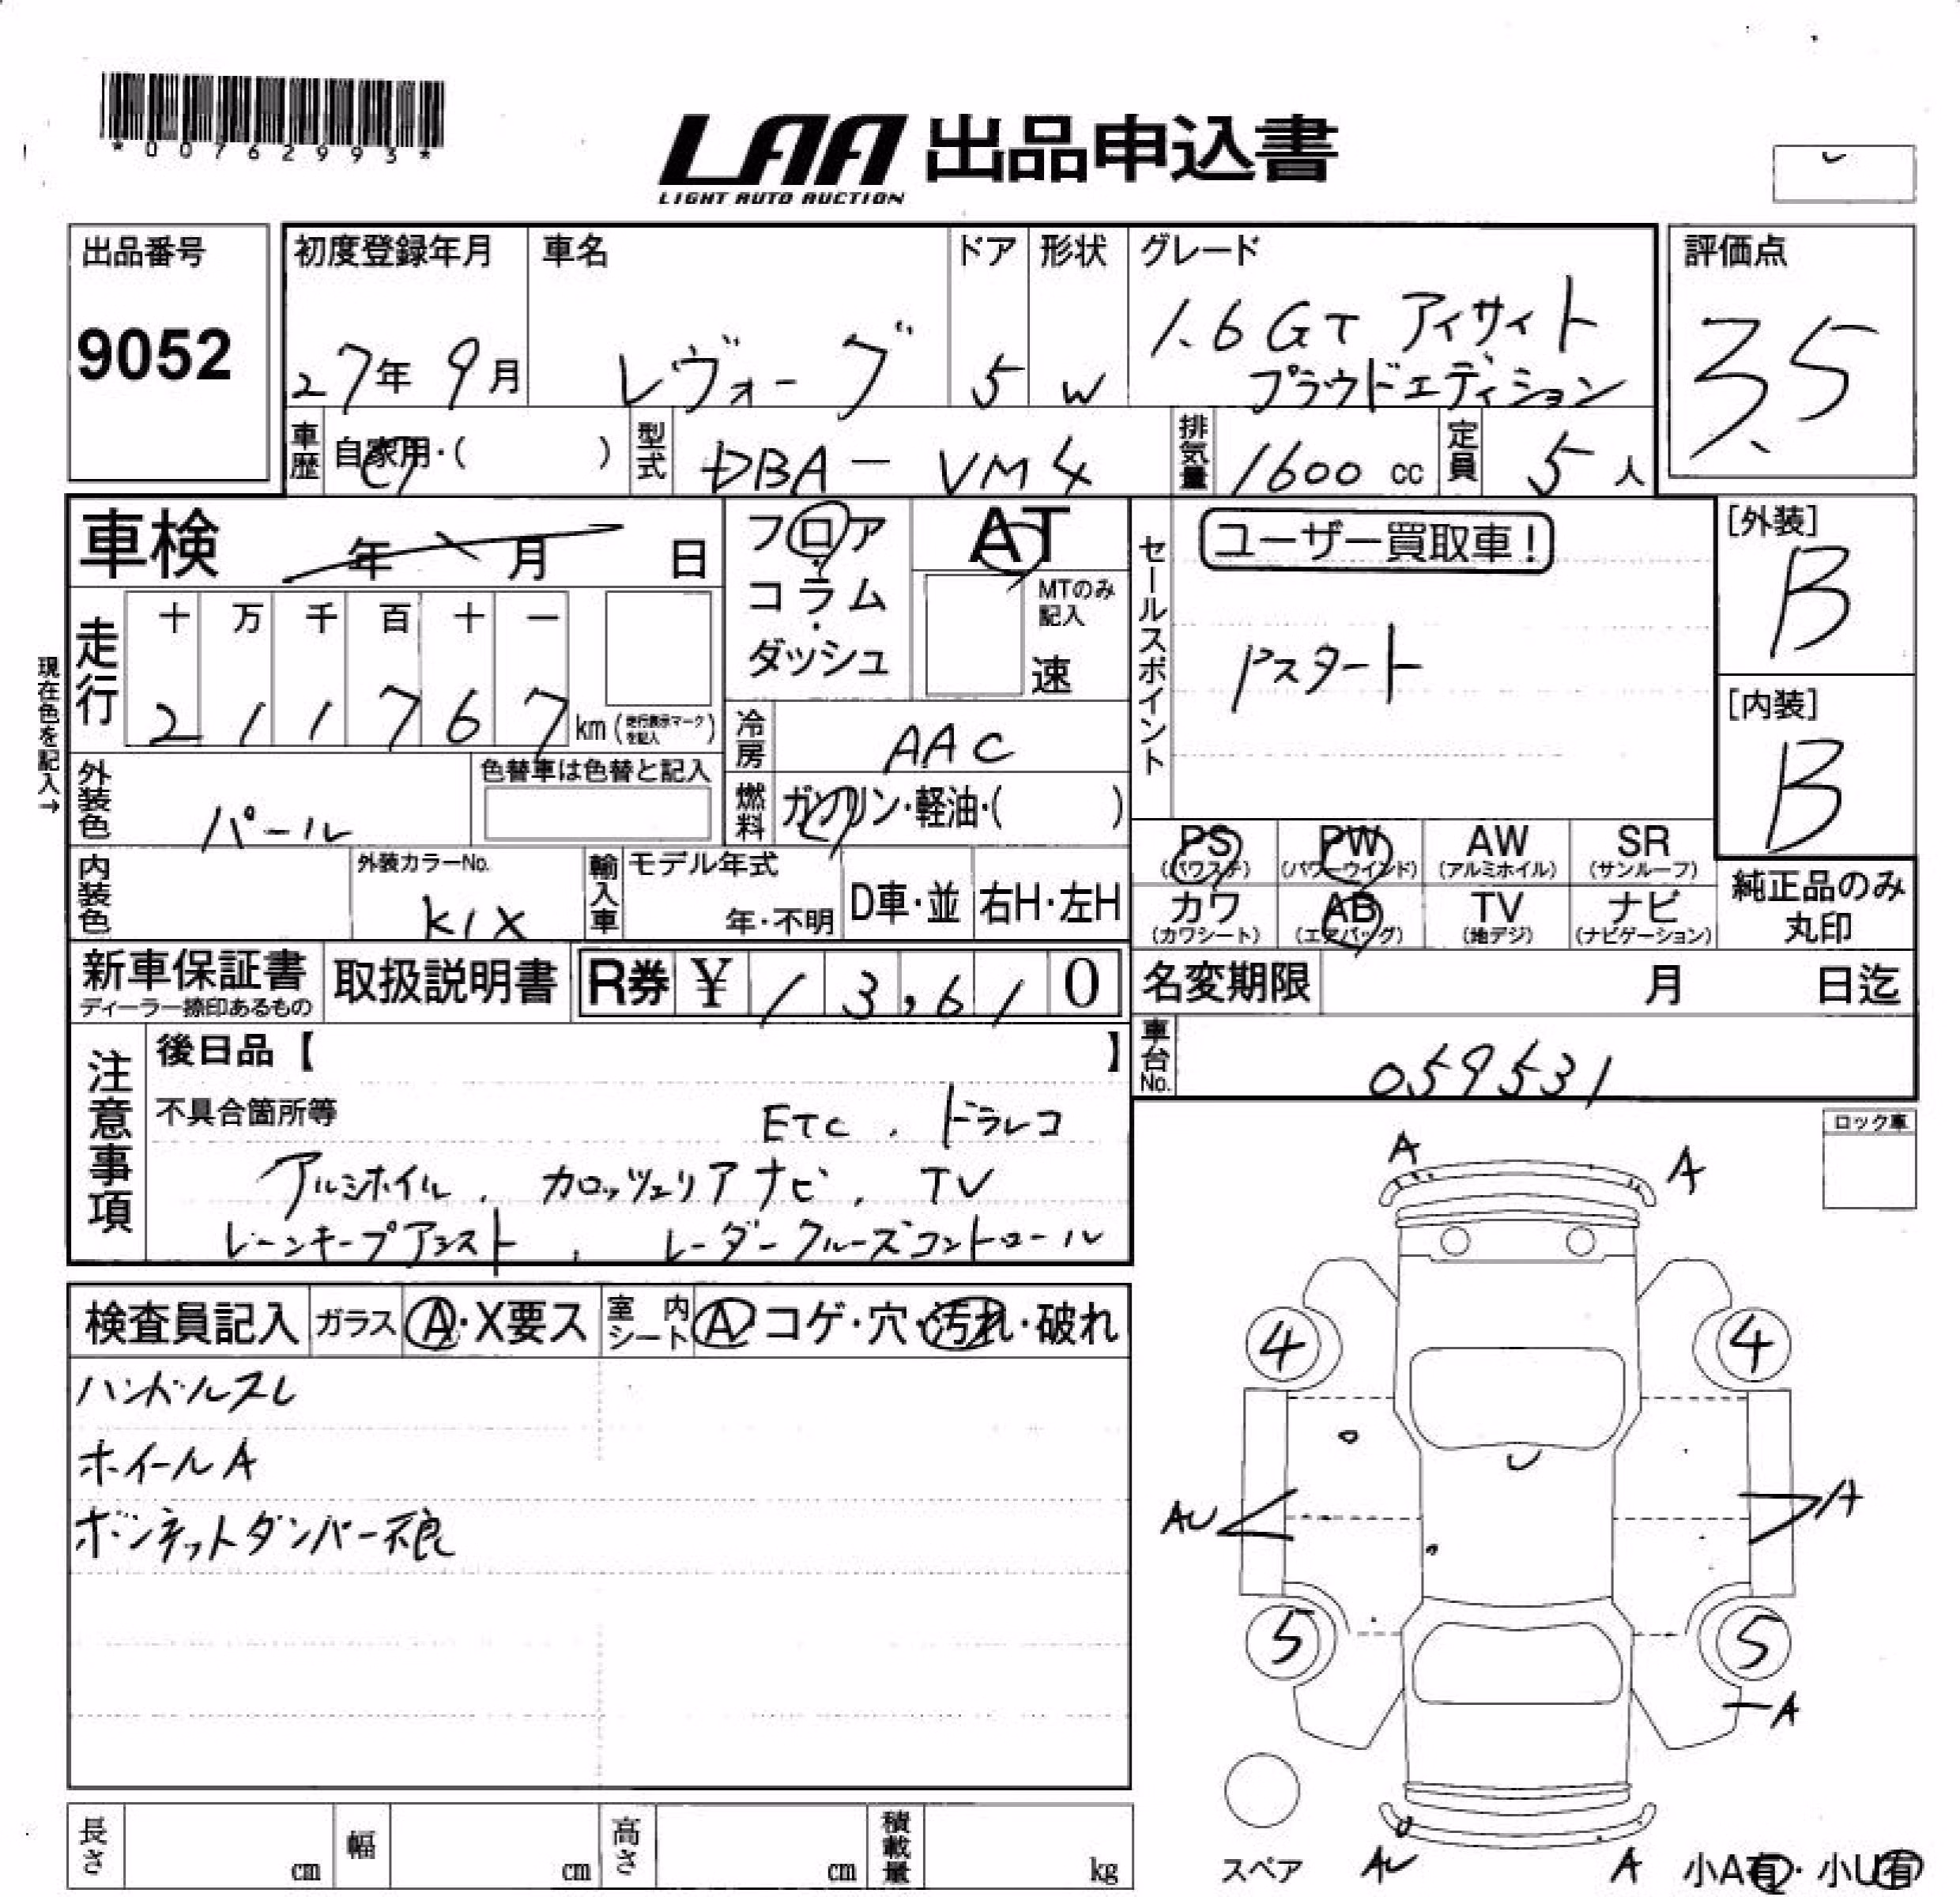 *00762993*
LAA 出品申込書
LIGHT AUTO AUCTION
出品番号
9052
初度登録年月
27年 9月
車名
レヴォーグ
ドア
5
形状
W
グレード
1.6GT アイサイト
プラウドエディション
評価点
3.5
車歴
自家用・( )
型式
DBA-VM4
排気量
1600 cc
定員
5人
車検 年 月 日
フロア
・
コラム
・
ダッシュ
AT
MTのみ
記入
速
セールスポイント
ユーザー買取車!
Pスタート
[外装]
B
[内装]
B
現在色を記入→
走行
十 万 千 百 十 一
2 1 1 7 6 7 km (走行表示マークを記入)
冷房
AAC
外装色
パール
色替車は色替と記入
燃料
ガソリン・軽油・( )
PS
(パワステ)
PW
(パワーウインド)
AW
(アルミホイル)
SR
(サンルーフ)
カワ
(カワシート)
AB
(エアバッグ)
TV
(地デジ)
ナビ
(ナビゲーション)
純正品のみ
丸印
内装色
外装カラーNo.
K1X
輸入車
モデル年式
年・不明
D車・並
右H・左H
新車保証書
ディーラー捺印あるもの
取扱説明書
R券 ¥ 13,610
名変期限 月 日迄
車台No.
059531
注意事項
後日品【 】
不具合箇所等
ETC . ドラレコ
アルミホイル . カロッツェリアナビ . TV
レーンキープアシスト . レーダークルーズコントロール
ロック車
検査員記入
ガラス
A・X要ス
室内シート
A・コゲ・穴・汚れ・破れ
ハンドルスレ
ホイールA
ボンネットダンパー不良
A
A
4
4
U
AU
A
5
5
A
U
AU
A
スペア
小A有・小U有
長さ cm
幅 cm
高さ cm
積載量 kg